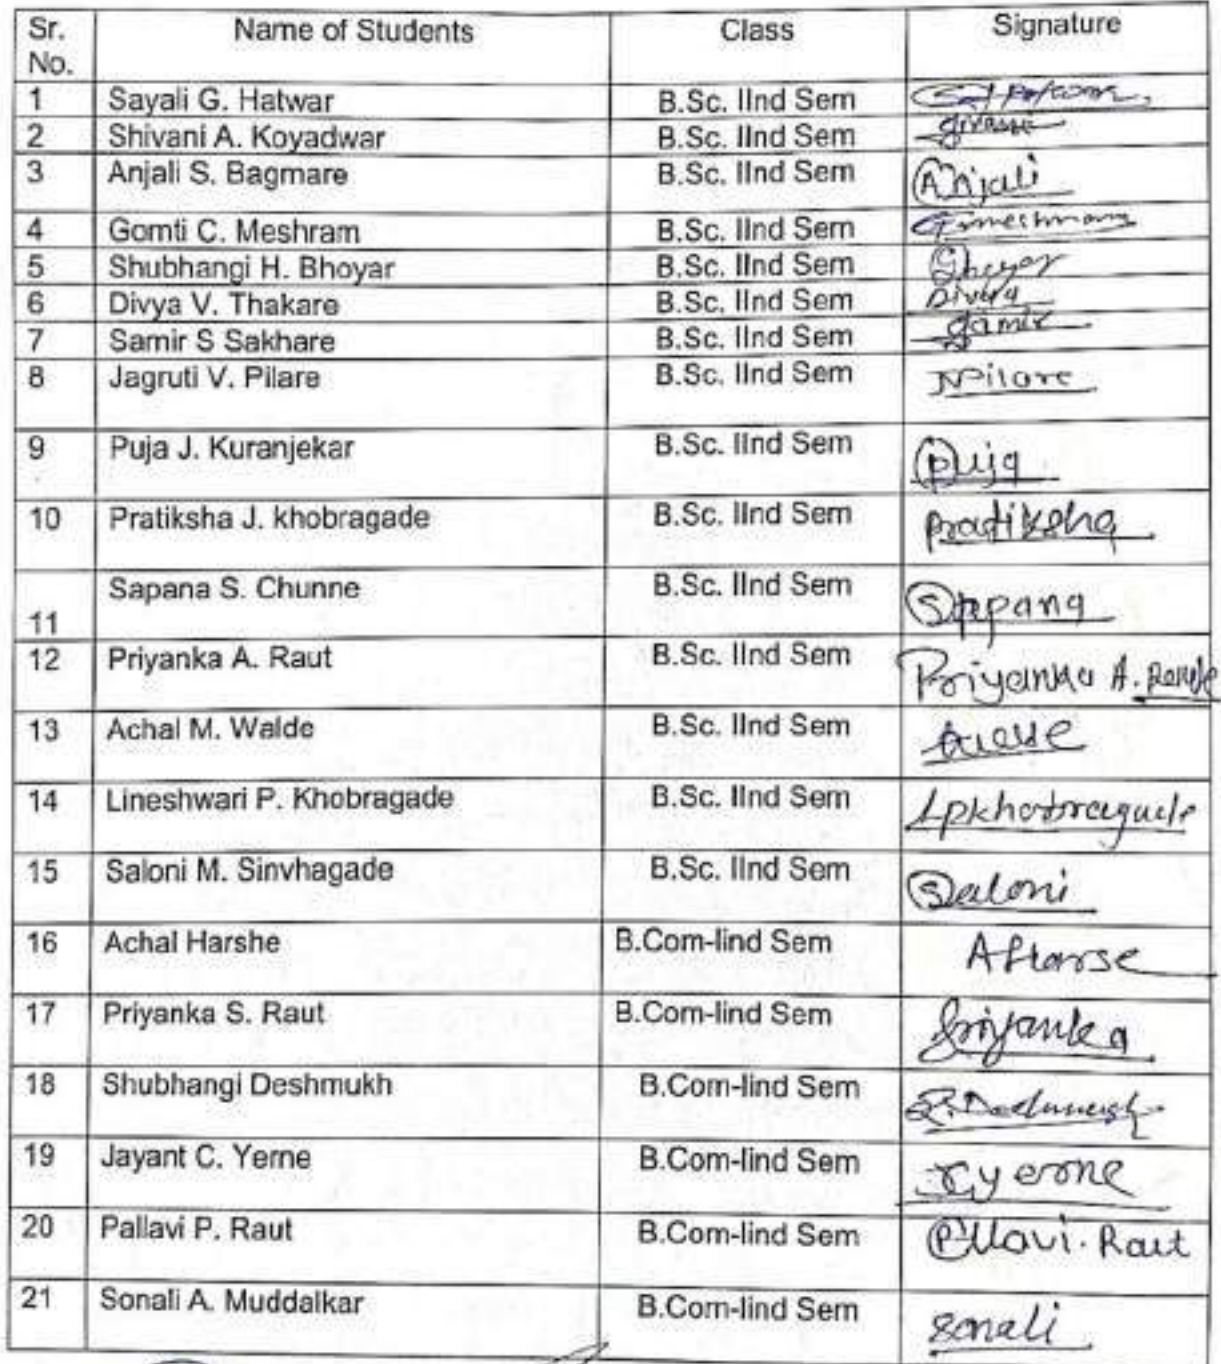 Sr. No. Name of Students Class Signature
1 Sayali G. Hatwar B.Sc. IInd Sem
2 Shivani A. Koyadwar B.Sc. IInd Sem
3 Anjali S. Bagmare B.Sc. IInd Sem Anjali
4 Gomti C. Meshram B.Sc. IInd Sem Gmeshram
5 Shubhangi H. Bhoyar B.Sc. IInd Sem
6 Divya V. Thakare B.Sc. IInd Sem Divya
7 Samir S Sakhare B.Sc. IInd Sem Samir
8 Jagruti V. Pilare B.Sc. IInd Sem JVPilare
9 Puja J. Kuranjekar B.Sc. IInd Sem Puja
10 Pratiksha J. khobragade B.Sc. IInd Sem Pratiksha
11 Sapana S. Chunne B.Sc. IInd Sem Sapana
12 Priyanka A. Raut B.Sc. IInd Sem Priyanka A.
13 Achal M. Walde B.Sc. IInd Sem
14 Lineshwari P. Khobragade B.Sc. IInd Sem Lpkhobragade
15 Saloni M. Sinvhagade B.Sc. IInd Sem Saloni
16 Achal Harshe B.Com-Iind Sem AHarse
17 Priyanka S. Raut B.Com-Iind Sem Priyanka
18 Shubhangi Deshmukh B.Com-Iind Sem S.Deshmukh
19 Jayant C. Yerne B.Com-Iind Sem
20 Pallavi P. Raut B.Com-Iind Sem Pllavi. Raut
21 Sonali A. Muddalkar B.Com-Iind Sem Sonali